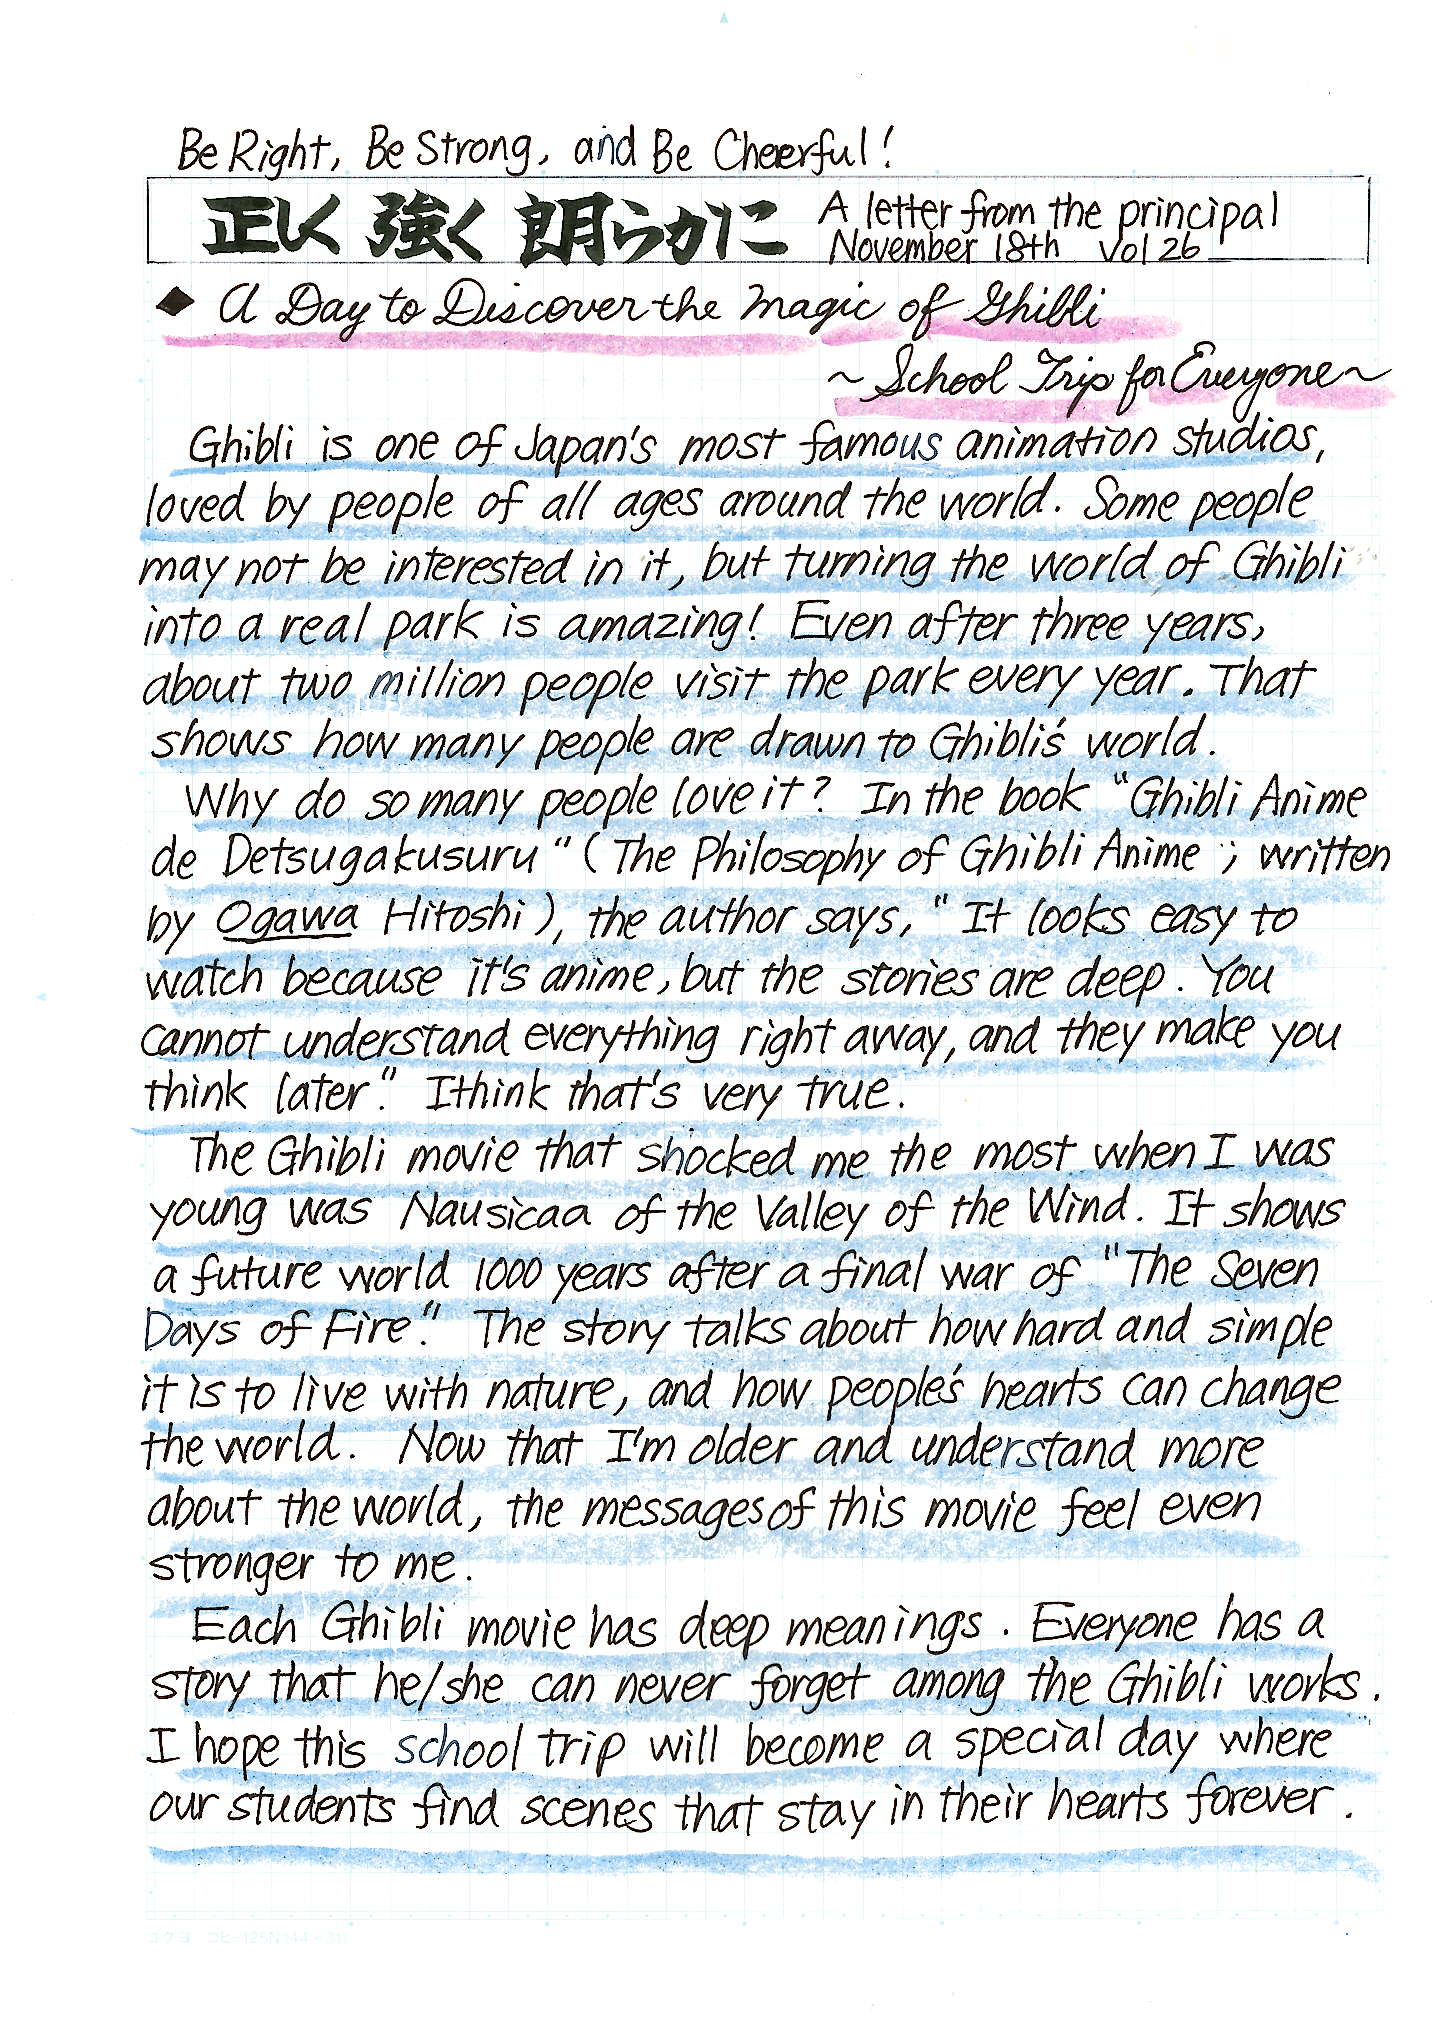 Be Right, Be Strong, and Be Cheerful!
正しく 強く 朗らかに
A letter from the principal
November 18th vol 26
◆ A Day to Discover the Magic of Ghibli
~School Trip for Everyone~
Ghibli is one of Japan's most famous animation studios,
loved by people of all ages around the world. Some people
may not be interested in it, but turning the world of Ghibli
into a real park is amazing! Even after three years,
about two million people visit the park every year. That
shows how many people are drawn to Ghibli's world.
Why do so many people love it? In the book "Ghibli Anime
de Detsugakusuru" (The Philosophy of Ghibli Anime ; written
by Ogawa Hitoshi), the author says, "It looks easy to
watch because it's anime, but the stories are deep. You
cannot understand everything right away, and they make you
think later." I think that's very true.
The Ghibli movie that shocked me the most when I was
young was Nausicaa of the Valley of the Wind. It shows
a future world 1000 years after a final war of "The Seven
Days of Fire." The story talks about how hard and simple
it is to live with nature, and how people's hearts can change
the world. Now that I'm older and understand more
about the world, the messages of this movie feel even
stronger to me.
Each Ghibli movie has deep meanings. Everyone has a
story that he/she can never forget among the Ghibli works.
I hope this school trip will become a special day where
our students find scenes that stay in their hearts forever.